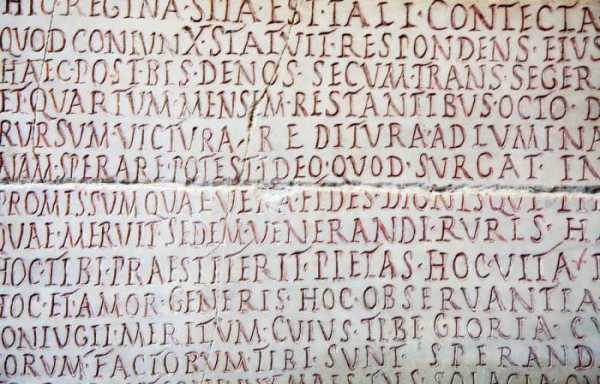 HIC·REGINA·SITA·EST·TALI·CONTECTA
QVOD·CONIVNX·STATVIT·RESPONDENS·EIVS
HAEC·POST·BIS·DENOS·SECVM·TRANS·SEGER
ET·QVARTVM·MENSEM·RESTANTIBVS·OCTO·D
RVRSVM·VICTVRA·REDITVRA·AD·LVMINA
NAM·SPERARE·POTEST·IDEO·QVOD·SVRGAT·IN
PROMISSVM·QVAE·VERA·FIDES·DIGNISQV
QVAE·MERVIT·SEDEM·VENERANDI·RVRIS·H
HOC·TIBI·PRAESTITERIT·PIETAS·HOC·VITA
HOC·ET·AMOR·GENERIS·HOC·OBSERVANTIA
CONIVGII·MERITVM·CVIVS·TIBI·GLORIA·CV
ORVM·FACTORVM·TIBI·SVNT·SPERAND